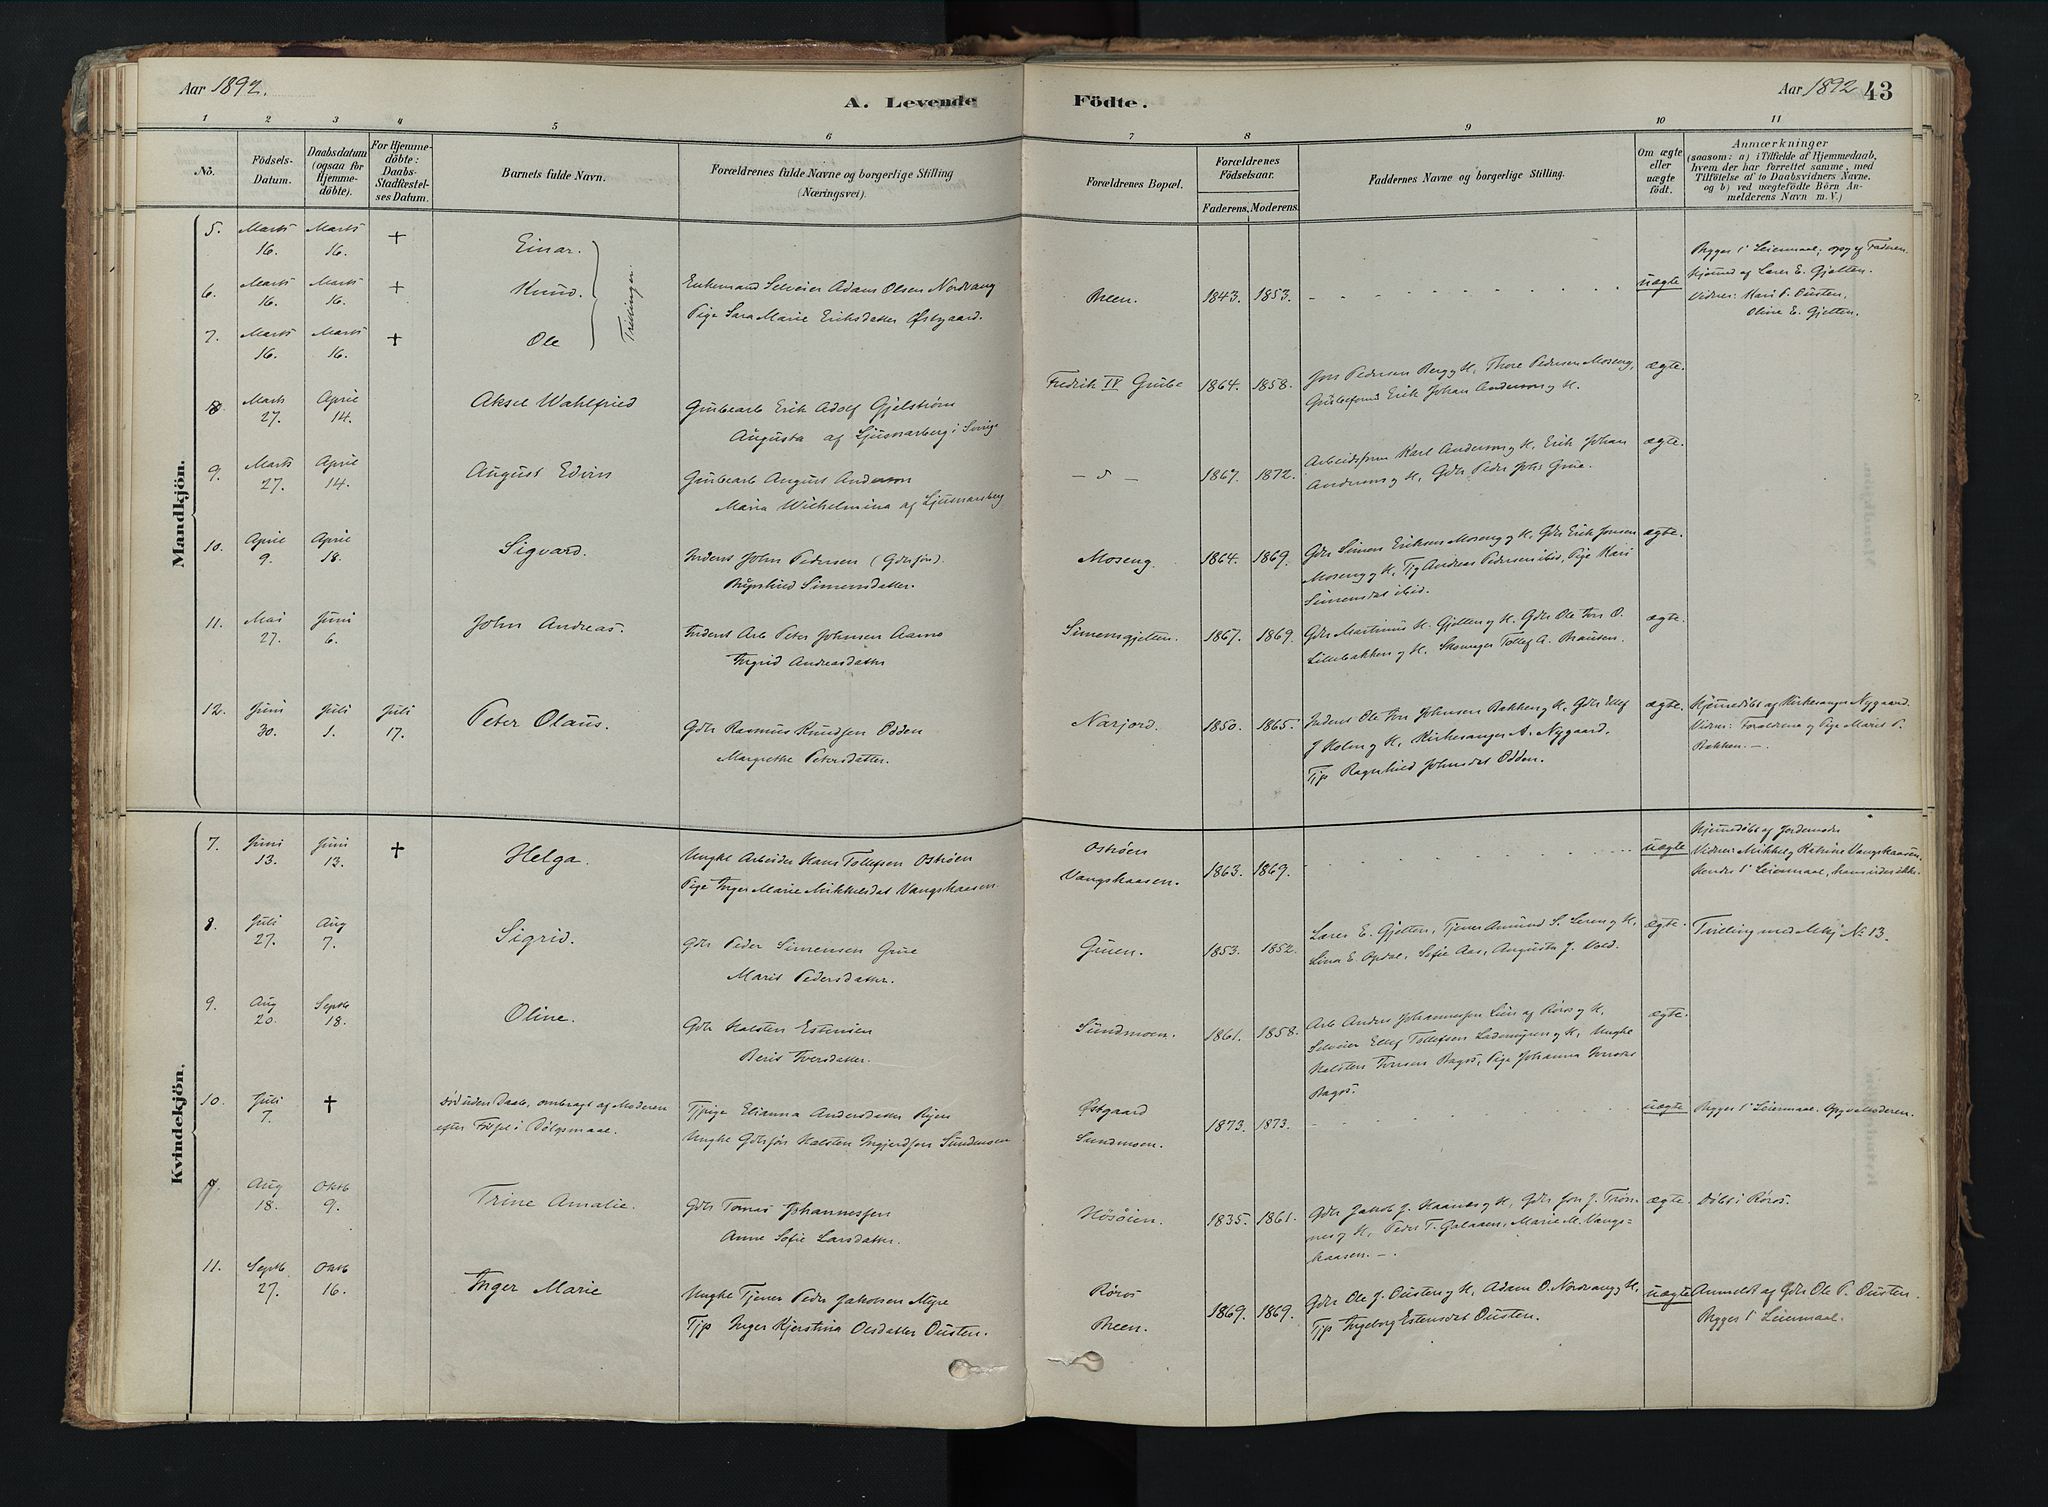 Aar 1892.
A. Levende Födte.
Aar 1892
43
1 2 3 4 5 6 7 8 9 10 11
No.
Födsels-Datum.
Daabsdatum (ogsaa for Hjemme-döbte).
For Hjemme-döbte: Daabs-Stadfæstel-ses Datum.
Barnets fulde Navn.
Forældrenes fulde Navne og borgerlige Stilling (Næringsvei).
Forældrenes Bopæl.
Forældrenes Födselsaar.
Faderens. Moderens.
Faddernes Navne og borgerlige Stilling.
Om ægte eller uægte födt.
Anmærkninger
(saasom: a) i Tilfælde af Hjemmedaab,
hvem der har forrettet samme, med
Tilföielse af to Daabsvidners Navne,
og b) ved uægtefödte Börn An-
melderens Navn m. V.)
Mandkjön.
5. Marts 16. Marts 16. + Einar.
6. Marts 16. Marts 16. + Knud.
7. Marts 16. Marts 16. + Ole
Trillinger.
Enkemand Selveier Adam Olsen Nordvang
Pige Sara Marie Eriksdatter Østgaard.
Breen. 1843. 1853. uægte
Begges 1' Leiermaal, opg af Faderen.
Hjemmed af Lærer E. Gjelten.
Vidner: Kari P. Ousten,
Oline E. Gjelten.
8. Marts 27. April 14. Aksel Wahlfried
Grubearb Erik Adolf Gjelström
Augusta af Ljusnarsberg i Sverige
Fredrik IV Grube 1864. 1858.
Jon Pedersen Berg g H, Thore Pedersen Moseng,
Erik Johan Anderson g H.
ægte.
9. Marts 27. April 14. August Edvin
Grubearb August Anderson
Maria Wilhelmina af Ljusnarsberg
1867. 1872.
Karl Anderson g H, Erik Johan
Anderson g H, Gdr Peder Johs Grue.
ægte.
10. April 9. April 18. Sigvard.
Inderst John Pedersen (Gdrsøn).
Ragnhild Simensdatter.
Moseng. 1864. 1869.
Gdr Simen Eriksen Moseng g H, Gdr Erik Jonsen
Moseng g H, Tj Andreas Pedersen ibid, Pige Kari
Simensdat ibid.
ægte.
11. Mai 27. Juni 6. John Andreas.
Inderst Arb Peter Johnsen Aamo
Ingrid Andreasdatter
Simensgjelten. 1867. 1869.
Gdr Martinus H. Gjelten g H. Gdr Ole Iver O.
Lillebakken g H, Tollef A. Brausen.
ægte.
12. Juni 30. Juli 1. Juli 17. Peter Olaus.
Gdr Rasmus Knudsen Odden
Margrethe Petersdatter.
Narjord. 1850. 1865.
Inderst Ole Iver Johnsen Bakken g H, Gdr Ellef
J Holm g H, Kirkesanger A. Nygaard.
Tjp Ragnhild Johnsdat Odden.
ægte.
Hjemmedöbt af Kirkesanger Nygaard.
Vidner: Forældrene og Pige Marit P.
Bakken. —.
Kvindekjön.
7. Juni 13. Juni 13. + Helga.
Ungke Arbeider Hans Tollefsen Ostrøen
Pige Inger Marie Mikkelsdat Vangskaasen.
Ostrøen
Vangskaasen. 1863. 1869. uægte
Hjemmedöbt af Jordemoder
Vidner: Mikkel g Katrine Vangskaasen.
Hendes 1' Leiermaal, hans vides ikke.
8. Juli 27. Aug 7. Sigrid.
Gdr Peder Simensen Grue
Marit Pedersdatter.
Gruen. 1853. 1852.
Lærer E. Gjelten, Tjener Amund S. Leren g H,
Lina E. Opdal, Sofie Aas, Augusta J. Vold.
ægte. Tvilling med Mkj No 13.
9. Aug 20. Septb 18. Oline.
Gdr Halsten Estensen
Berit Iversdatter.
Sundmoen. 1861. 1858.
Arb Anders Johannessen Lien af Røros g H,
Selveier Ellef Tollefsen Lademoen g H, Ungke
Halsten Iversen Bagos, Pige Johanna Iversdat
Bagos.
ægte.
10. Juli 7. † Död uden Daab, ombragt af Moderen
efter Födsel i Dølgsmaal.
Tjpige Elianna Andersdatter Ryen
Ungke Gdrsön Halsten Ingjerdsen Sundmoen
Østgaard
Sundmoen. 1873. 1873. uægte
Begges 1' Leiermaal. Opg Moderen.
Aug 18. Oktb 9. Trine Amalie.
Gdr Tomas Johannessen
Anne Sofie Larsdatter.
Høsøien. 1835. 1861.
Gdr Jakob J. Kaanes g H, Gdr Jon J. Trøn-
nes g H, Peder T. Galaaen, Marie M. Vangs-
kaasen. —.
ægte. Döbt i Røros.
11. Septb. 27. Oktb 16. Inger Marie
Ungke Tjener Peder Jakobsen Myre
Tjp Inger Kjerstina Olsdatter Ousten.
Røros
Breen. 1869. 1869.
Gdr Ole J. Ousten g H, Adam O. Nordvang g H,
Tjp Ingeborg Estensdat Ousten.
uægte Anmeldt af Gdr Ole P. Ousten.
Begges 1' Leiermaal.